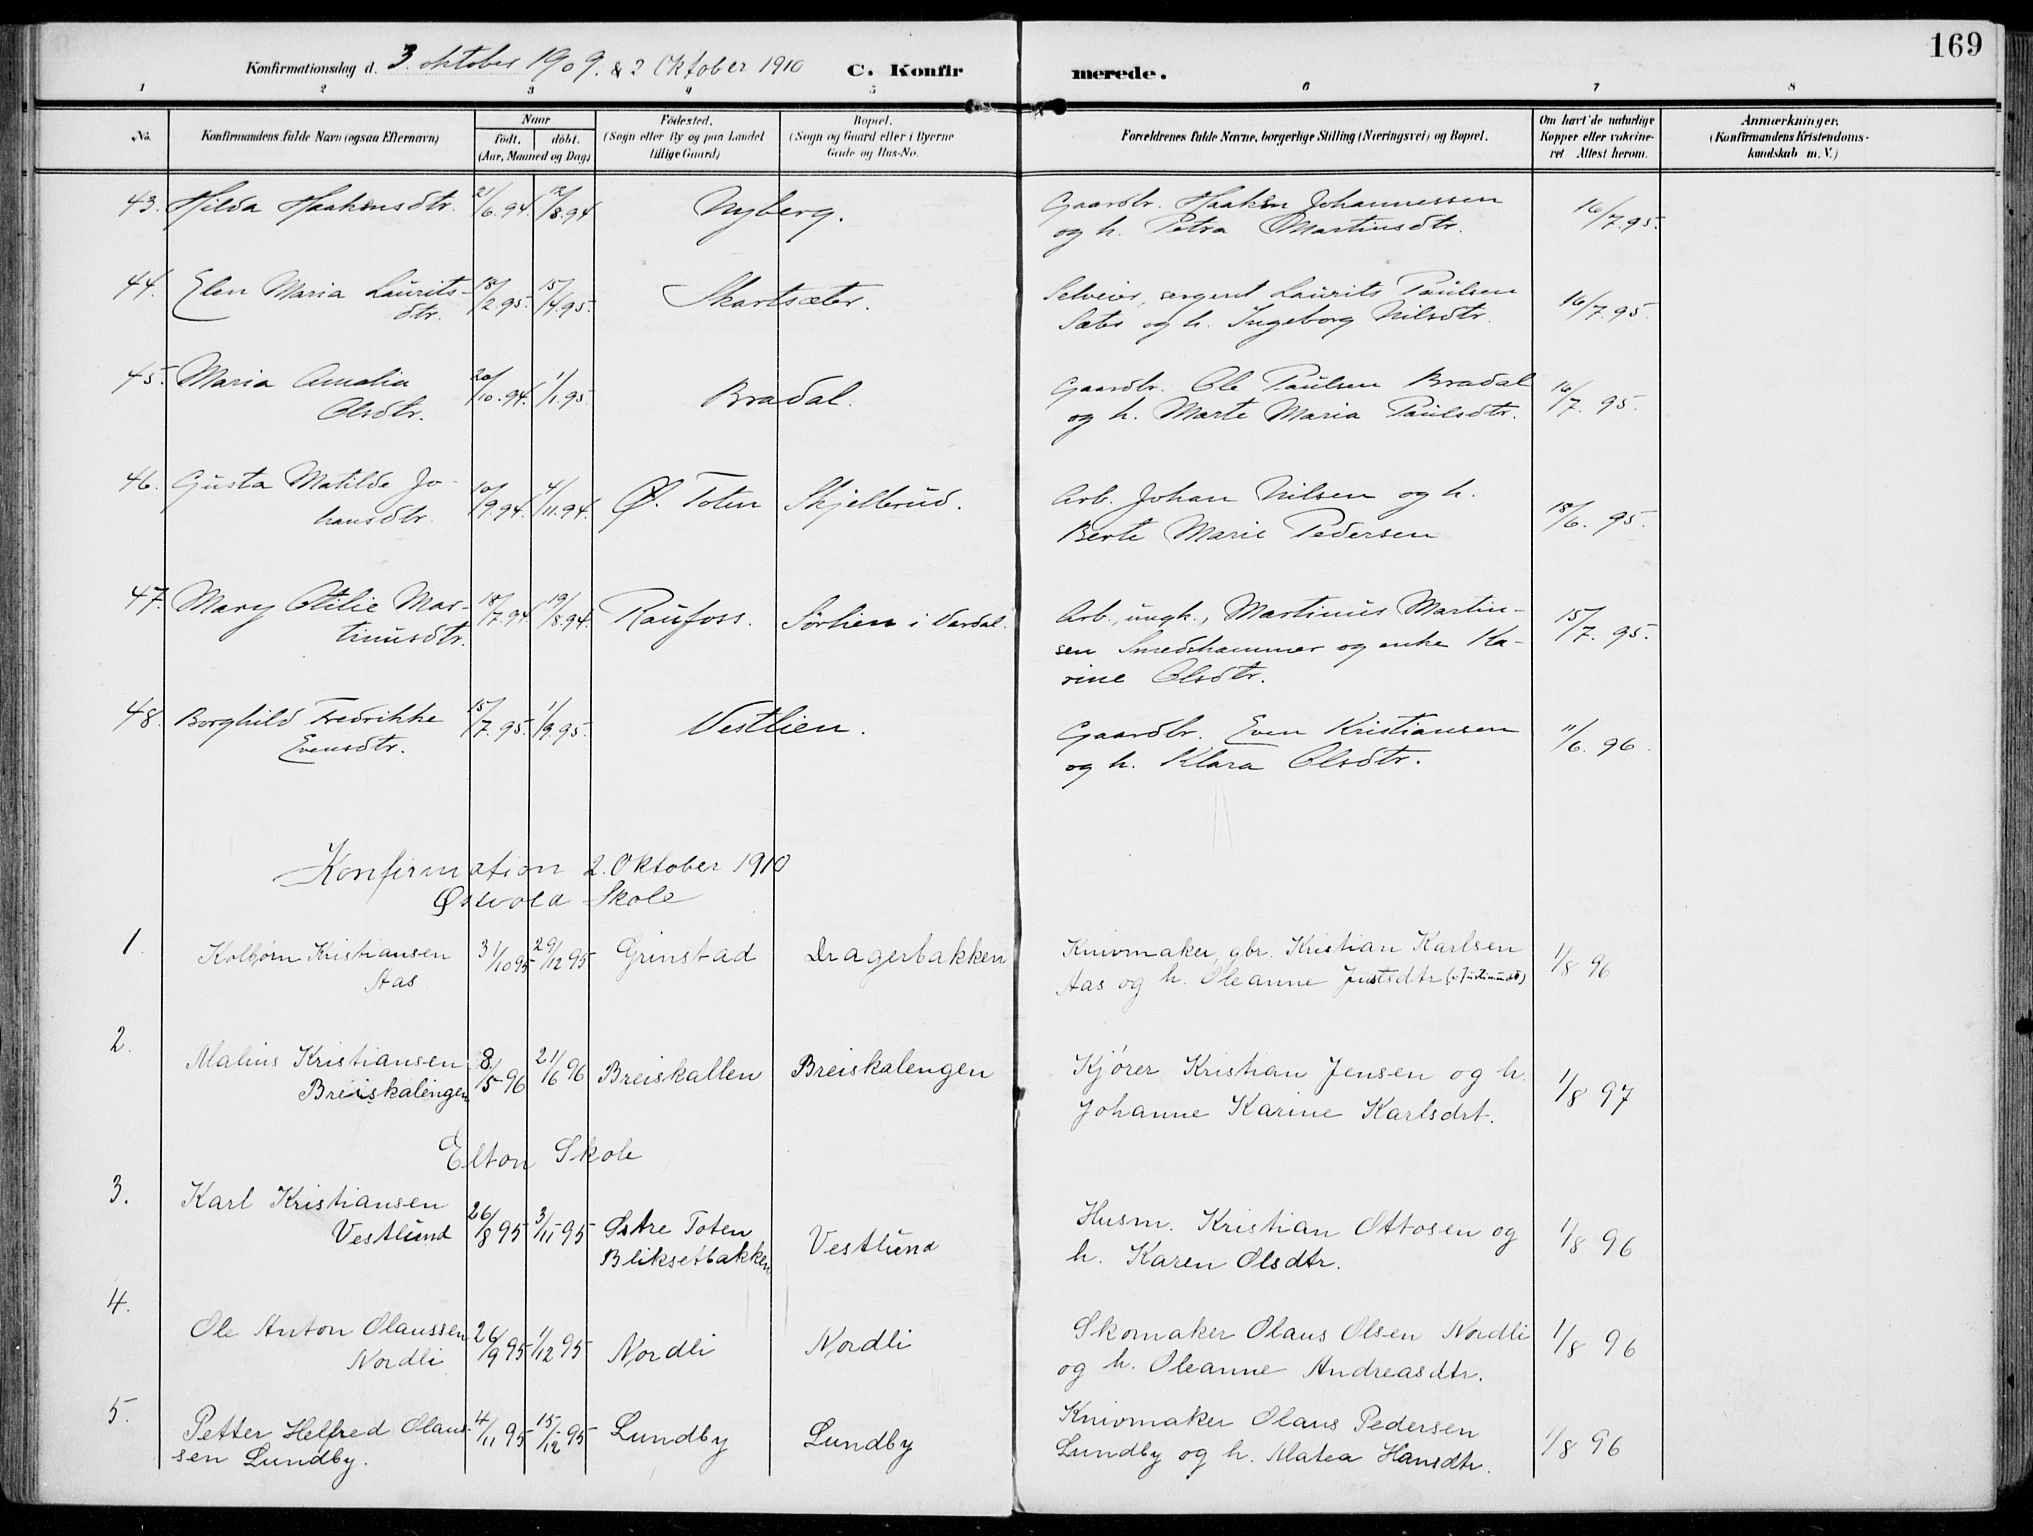 169
Konfirmationsdag d. 3. oktober 1909. & 2 Oktober 1910 C. Konfirmerede.
1 2 3 4 5 6 7 8
No. Konfirmandens fulde Navn (ogsaa Efternavn) Naar födt. döbt. (Aar, Maaned og Dag) Födested. (Sogn eller By og paa Landet tillige Gaard) Bopæl. (Sogn og Gaard eller i Byerne Gade og Hus-No. Forældrenes fulde Navne, borgerlige Stilling (Næringsvei) og Bopæl. Om havt de naturlige Kopper eller vakcineret Attest herom. Anmærkninger. (Konfirmandens Kristendomskundskab m. V.)
43. Hilda Haakensdtr. 21/6.94. 12/8.94 Nyberg. Gaardbr. Haaken Johannessen 16/7.95.
og h. Petra Martinusdtr.
44. Elen Maria Laurits- 18/2.95. 15/4.95. Skartsæter. Selveier, sergent Laurits Paulsen 16/7.95.
dtr. Sæter og h. Ingeborg Nilsdtr.
45. Maria Amalia 20/10.94. 1/1.95. Bradal. Gaardbr. Ole Paulsen Bradal 16/7. 95.
Olsdtr. og h. Marte Maria Paulsdtr.
46. Gusta Matilde Jo- 10/9.94. 4/11.94. Ø. Toten Skjelbrud. Arb. Johan Nilsen og h. 18/6. 95.
hansdtr. Berte Marie Pedersen
47. Mary Otilie Mar- 18/7.94. 19/8.94. Raufoss. Sørlien i Vardal. Arb., ungk., Martinus Martin- 15/7. 95.
tinusdtr. sen Smedshammer og enke Ka-
rine Olsdtr.
48. Borghild Fredrikke 15/7. 95. 1/9.95. Vestlien. Gaardbr. Even Kristiansen 11/6. 96.
Evensdtr. og h. Klara Olsdtr.
Konfirmation 2. Oktober 1910
Østvold Skole
1. Kolbjørn Kristiansen 31/10 95 29/12 95 Grinstad Dragerbakken Knivmaker, gbr. Kristian Karlsen 1/8 96
Aas Aas og h. Oleanne Justsdtr
2. Malius Kristiansen 8/5 96 21/6 96 Breiskallen Breiskalengen Kjører Kristian Jensen og h. 1/8 97
Breiskalengen Johanne Karine Karlsdrt.
Elton Skole
3. Karl Kristiansen 26/8 95 3/11 95 Østre Toten Vestlund Husm. Kristian Ottosen og 1/8 96
Vestlund Bliksetbakken h. Karen Olsdtr.
4. Ole Anton Olaussen 26/9 95 1/12 95 Nordli Nordli Skomaker Olaus Olsen Nordli 1/8 96
Nordli og h. Oleanne Andreasdtr.
5. Petter Helfred Olaus- 4/11 95 15/12 95 Lundby Lundby Knivmaker Olaus Pedersen 1/8 96
sen Lundby. Lundby og h. Matea Hansdtr.